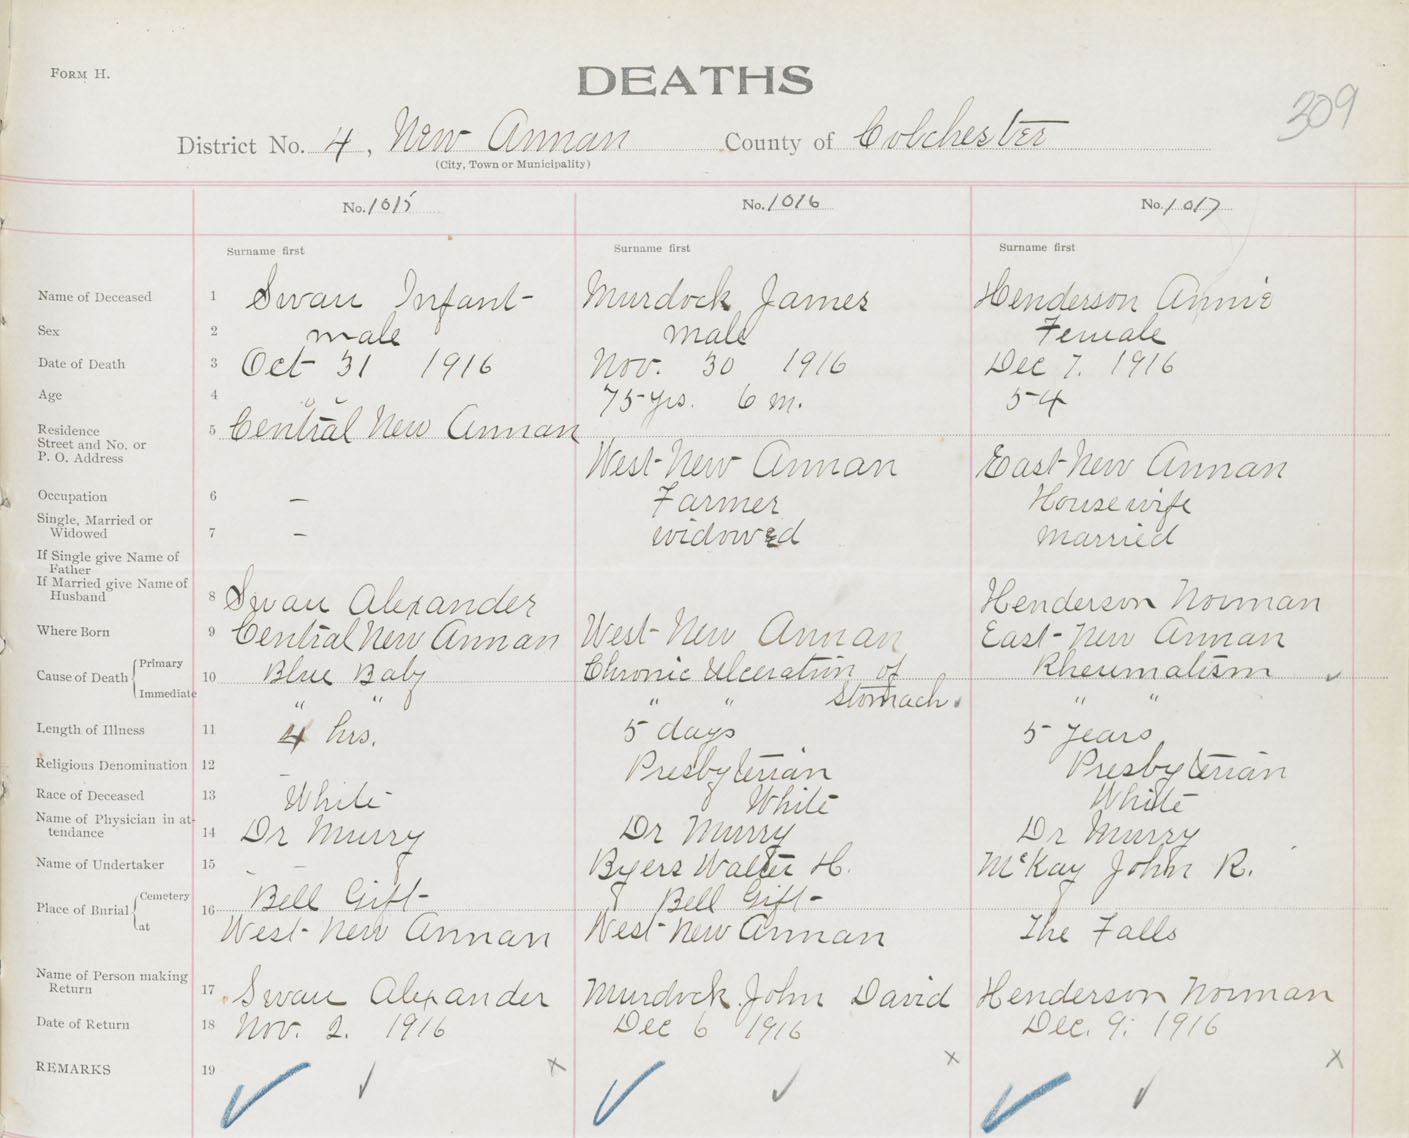 FORM H.
DEATHS
309
District No. 4, New Annan County of Colchester
(City, Town or Municipality)
No. 1015 No. 1016 No. 1017
Surname first Surname first Surname first
Name of Deceased 1 Swan Infant Murdock James Henderson Annie
Sex 2 male male Female
Date of Death 3 Oct 31 1916 Nov. 30 1916 Dec 7. 1916
Age 4 " " 75 yrs. 6 m. 54
Residence 5 Central New Annan
Street and No. or
P. O. Address West New Annan East New Annan
Occupation 6 – Farmer Housewife
Single, Married or
Widowed 7 – widowed married
If Single give Name of
Father
If Married give Name of
Husband 8 Swan Alexander Henderson Norman
Where Born 9 Central New Annan West New Annan East New Annan
Cause of Death { Primary 10 Blue Baby Chronic Ulceration of Stomach. Rheumatism
Immediate " " " " " "
Length of Illness 11 4 hrs. 5 days 5 years
Religious Denomination 12 – Presbyterian Presbyterian
Race of Deceased 13 White White White
Name of Physician in at-
tendance 14 Dr Murry Dr Murry Dr Murry
Name of Undertaker 15 – – Byers Walter H. McKay John R.
Place of Burial { Cemetery 16 Bell Gift Bell Gift
at West New Annan West New Annan The Falls
Name of Person making
Return 17 Swan Alexander Murdock John David Henderson Norman
Date of Return 18 Nov. 2. 1916 Dec 6 1916 Dec. 9. 1916
REMARKS 19 ✓ ✓ x ✓ ✓ x ✓ ✓ x